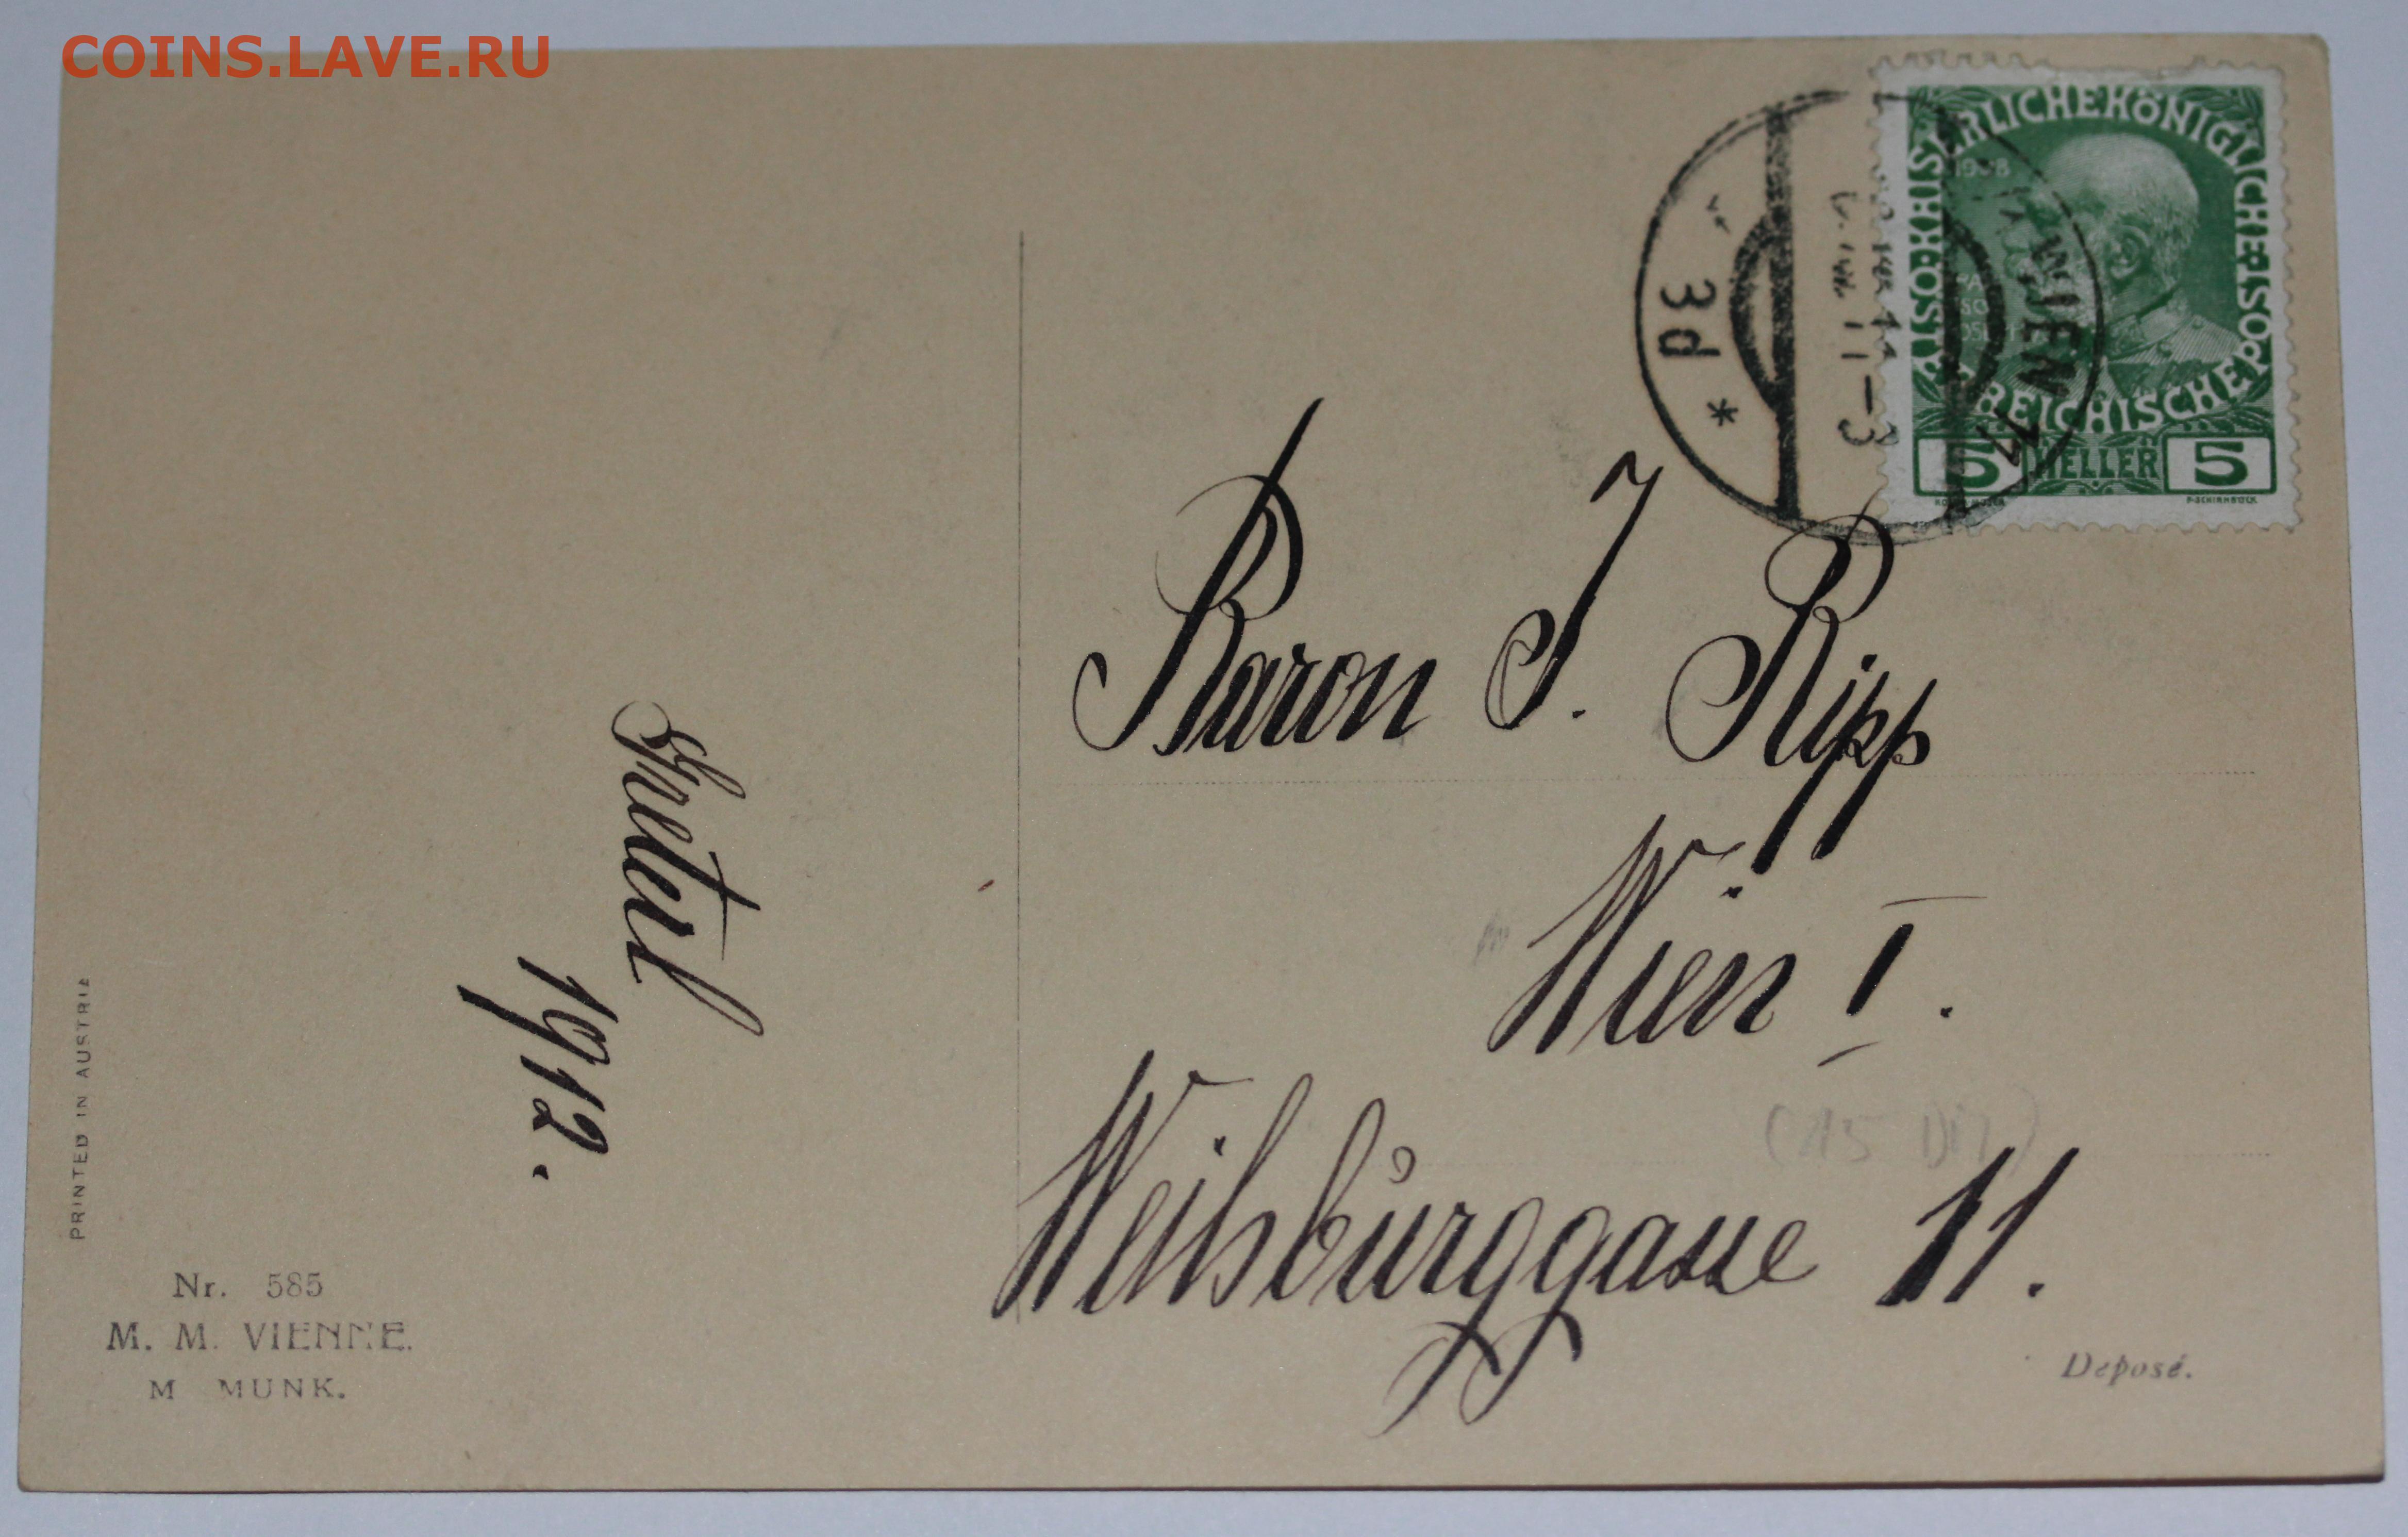 COINS.LAVE.RU
KAISERLICHE KÖNIGLICHE ÖSTERREICHISCHE POST
1908
5 HELLER 5
WIEN
3d *
11-3
Baron J. Ripp
Wien I.
Weihburggasse 11.
1912.
PRINTED IN AUSTRIA
Nr. 585
M. M. VIENNE.
M MUNK.
Deposé.